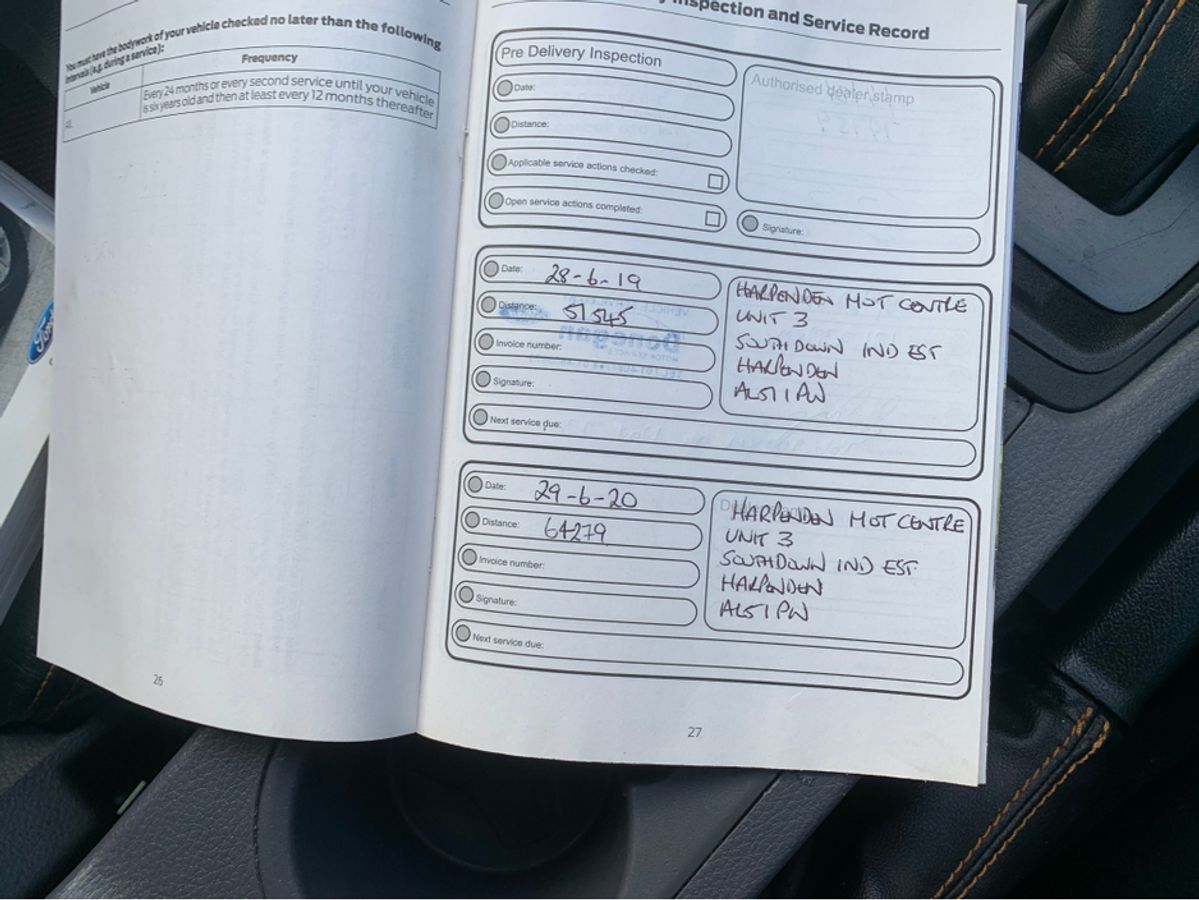 You must have the bodywork of your vehicle checked no later than the following
intervals (e.g. during a service):
Vehicle Frequency
All Every 24 months or every second service until your vehicle
is six years old and then at least every 12 months thereafter
26
Inspection and Service Record
Pre Delivery Inspection
Date:
Distance:
Applicable service actions checked:
Open service actions completed:
Authorised dealer stamp
Signature:
Date: 28-6-19
Distance: 51545
Invoice number:
Signature:
Next service due:
HARPENDEN MOT CENTRE
UNIT 3
SOUTHDOWN IND EST
HARPENDEN
AL5 1PW
Date: 29-6-20
Distance: 64279
Invoice number:
Signature:
Next service due:
HARPENDEN MOT CENTRE
UNIT 3
SOUTHDOWN IND EST
HARPENDEN
AL5 1PW
27
Ford